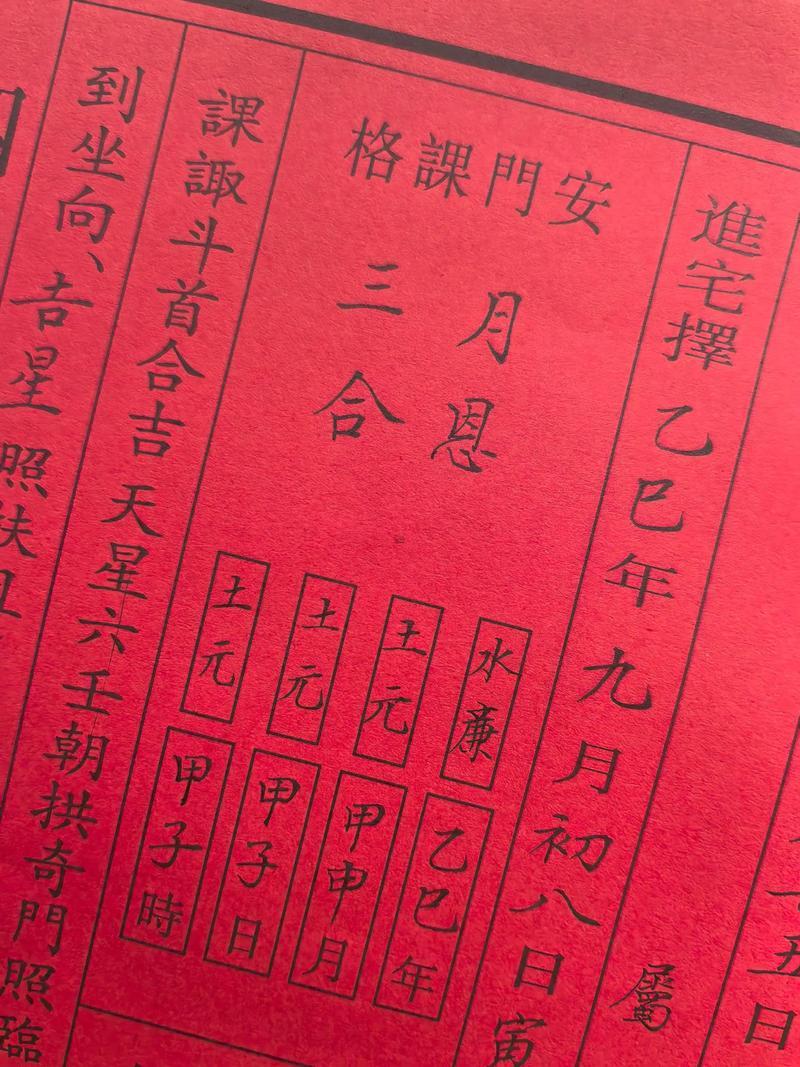 五日
屬
進宅擇乙巳年九月初八日寅
安門課格
月恩
三合
水廉
乙巳年
土元
甲申月
土元
甲子日
土元
甲子時
課諏斗首合吉天星六壬朝拱奇門照臨
到坐向、吉星照扶